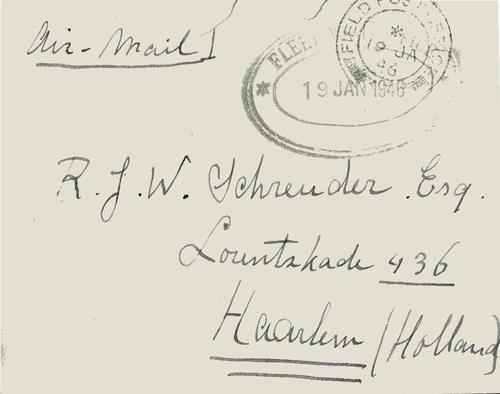 Air-Mail
FIELD POST OFFICE
19 JA
46
FLEET
19 JAN 1946
R. J. W. Schreuder Esq.
Lorentzkade 436
Haarlem (Holland)